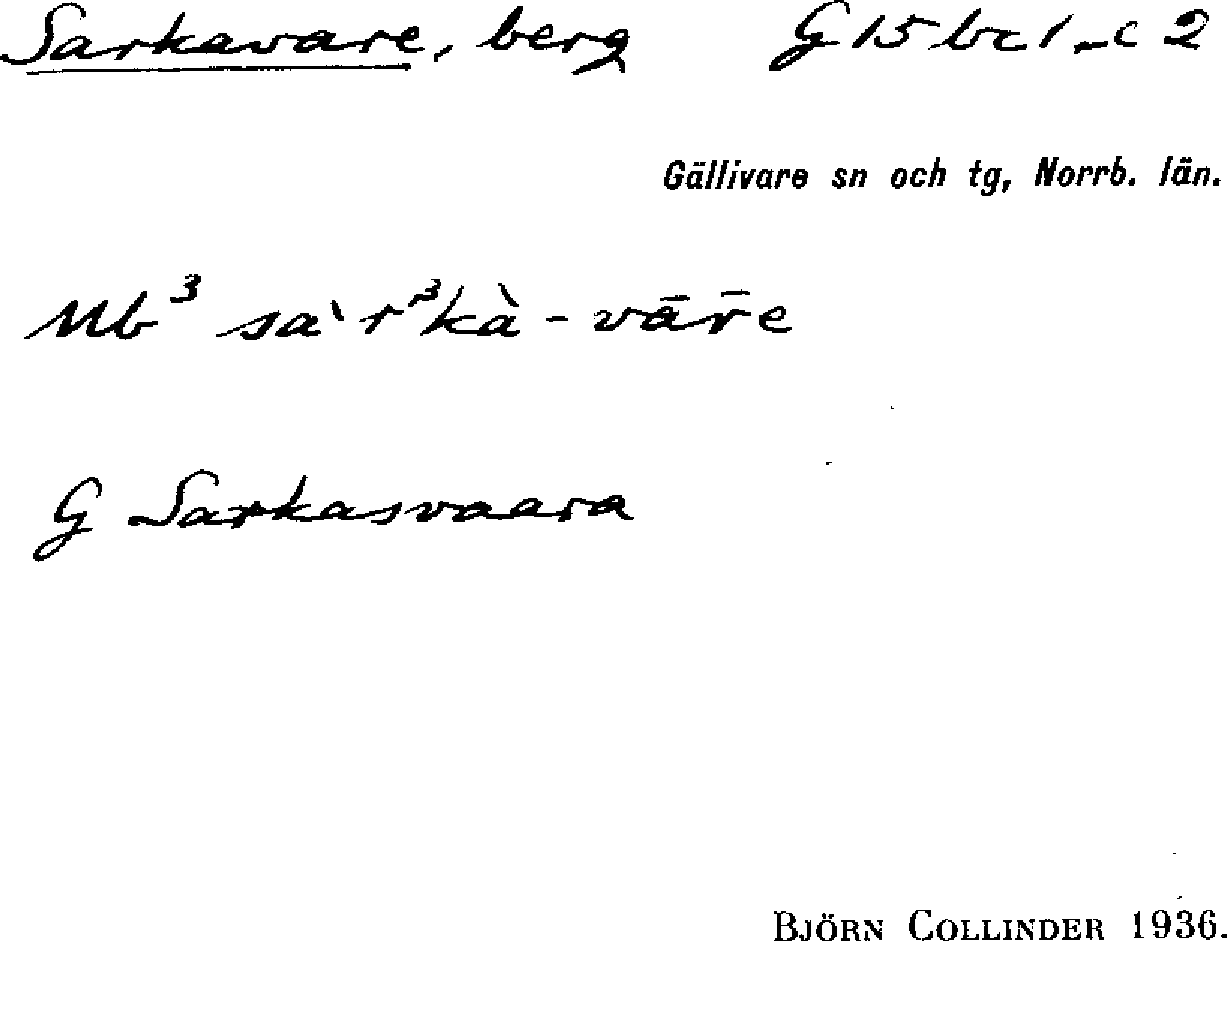 Sarkavare, berg G 15 bc 1 – c 2
Gällivare sn och tg, Norrb. län.
Mb³ sa`r³kà-vār̄e
G Sarkasvaara
BJÖRN COLLINDER 1936.